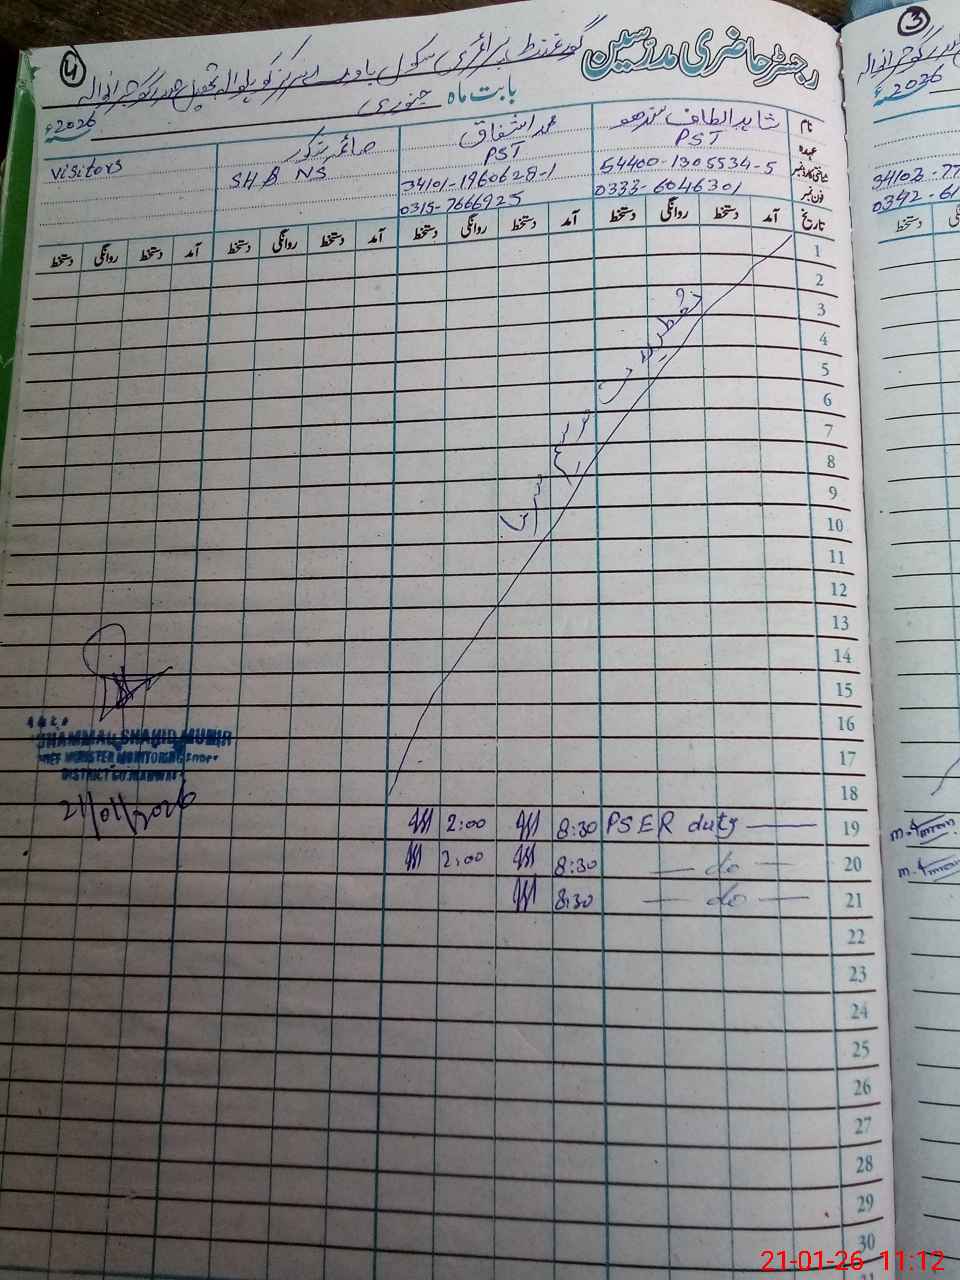 4
رجسٹر حاضری مدرسین
گورنمنٹ پرائمری سکول
بابت ماہ جنوری 2026ء
نام شاہد الطاف سندھو محمد اشفاق صائمہ Visitors
عہدہ PST PST SH & NS
شناختی کارڈ نمبر 54400-1305534-5 34101-1960628-1
فون نمبر 0333-6046301 0315-7666925
تاریخ آمد دستخط روانگی دستخط آمد دستخط روانگی دستخط آمد دستخط روانگی دستخط آمد دستخط روانگی دستخط
1
2
3
4
5
6
7
8
9
10
11
12
13
14
15
16
17
18
19 PSER duty 8:30 2:00
20 do 8:30 2:00
21 do 8:30
22
23
24
25
26
27
28
29
30
تعطیلات موسم سرما
SHAHID MUNIR
CHIEF MINISTER MONITORING FORCE
DISTRICT GUJRANWALA
21/01/2026
3
2026ء
34103-77
0342-61
دستخط
21-01-26 11:12